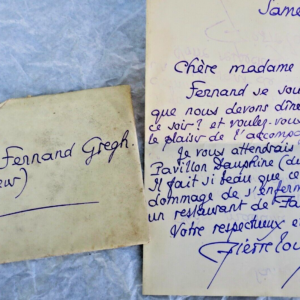 Fernand Gregh.
Same
Chère madame
Fernand se sou
que nous devons dîne
ce soir? et voulez-vous
le plaisir de l'accompa
Je vous attendrais
Pavillon Dauphine (de
Il fait si beau que ce
dommage de s'enferme
un restaurant de Pa
Votre respectueux e
Pierre Lou